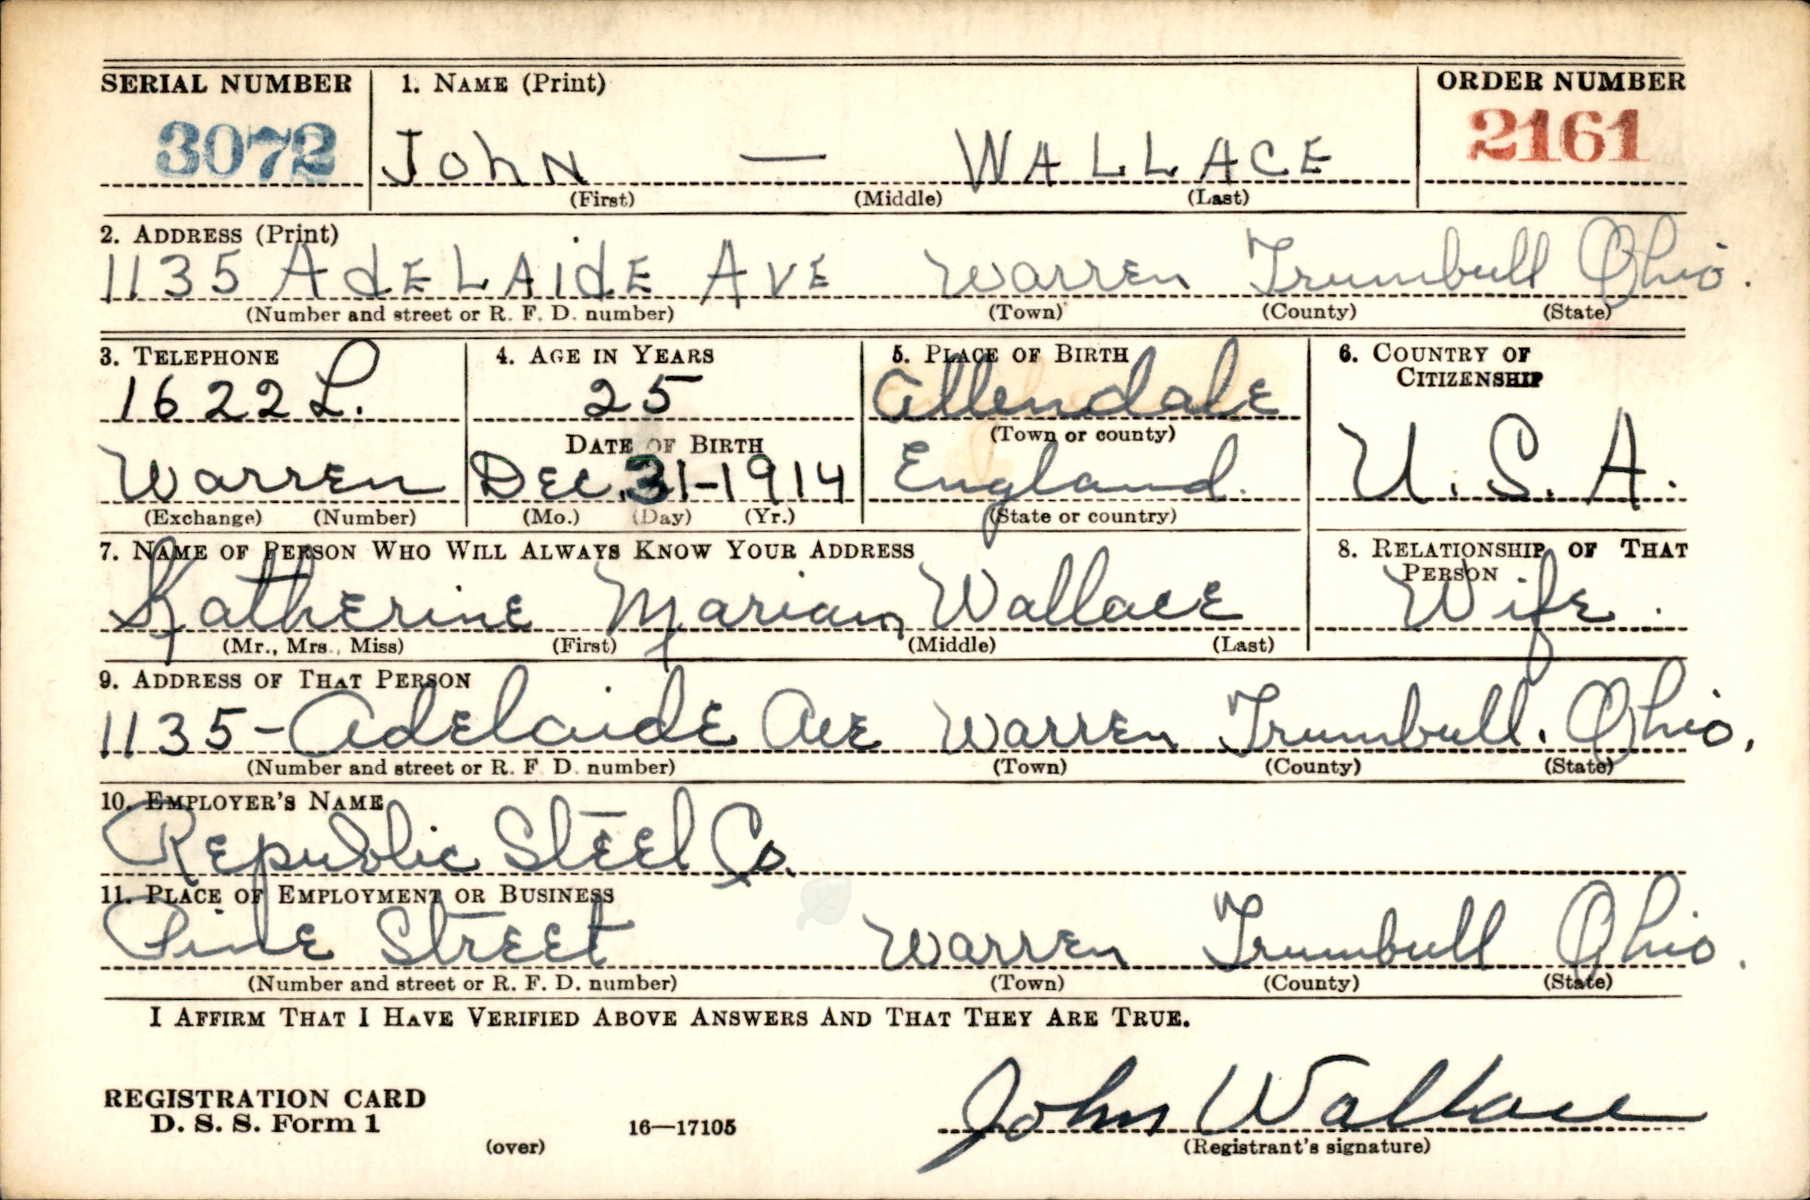 SERIAL NUMBER 1. NAME (Print) ORDER NUMBER
3072 JOHN — WALLACE 2161
(First) (Middle) (Last)
2. ADDRESS (Print)
1135 ADELAIDE AVE Warren Trumbull Ohio.
(Number and street or R. F. D. number) (Town) (County) (State)
3. TELEPHONE 4. AGE IN YEARS 5. PLACE OF BIRTH 6. COUNTRY OF
CITIZENSHIP
1622 L. 25 Allendale
(Town or county)
DATE OF BIRTH
Warren Dec. 31-1914 England. U. S. A.
(Exchange) (Number) (Mo.) (Day) (Yr.) (State or country)
7. NAME OF PERSON WHO WILL ALWAYS KNOW YOUR ADDRESS 8. RELATIONSHIP OF THAT
PERSON
Katherine Mariam Wallace Wife.
(Mr., Mrs., Miss) (First) (Middle) (Last)
9. ADDRESS OF THAT PERSON
1135-Adelaide Ave Warren Trumbull. Ohio.
(Number and street or R. F. D. number) (Town) (County) (State)
10. EMPLOYER'S NAME
Republic Steel Co.
11. PLACE OF EMPLOYMENT OR BUSINESS
Pine Street Warren Trumbull Ohio.
(Number and street or R. F. D. number) (Town) (County) (State)
I AFFIRM THAT I HAVE VERIFIED ABOVE ANSWERS AND THAT THEY ARE TRUE.
REGISTRATION CARD
D. S. S. Form 1
(over) 16—17105 John Wallace
(Registrant's signature)